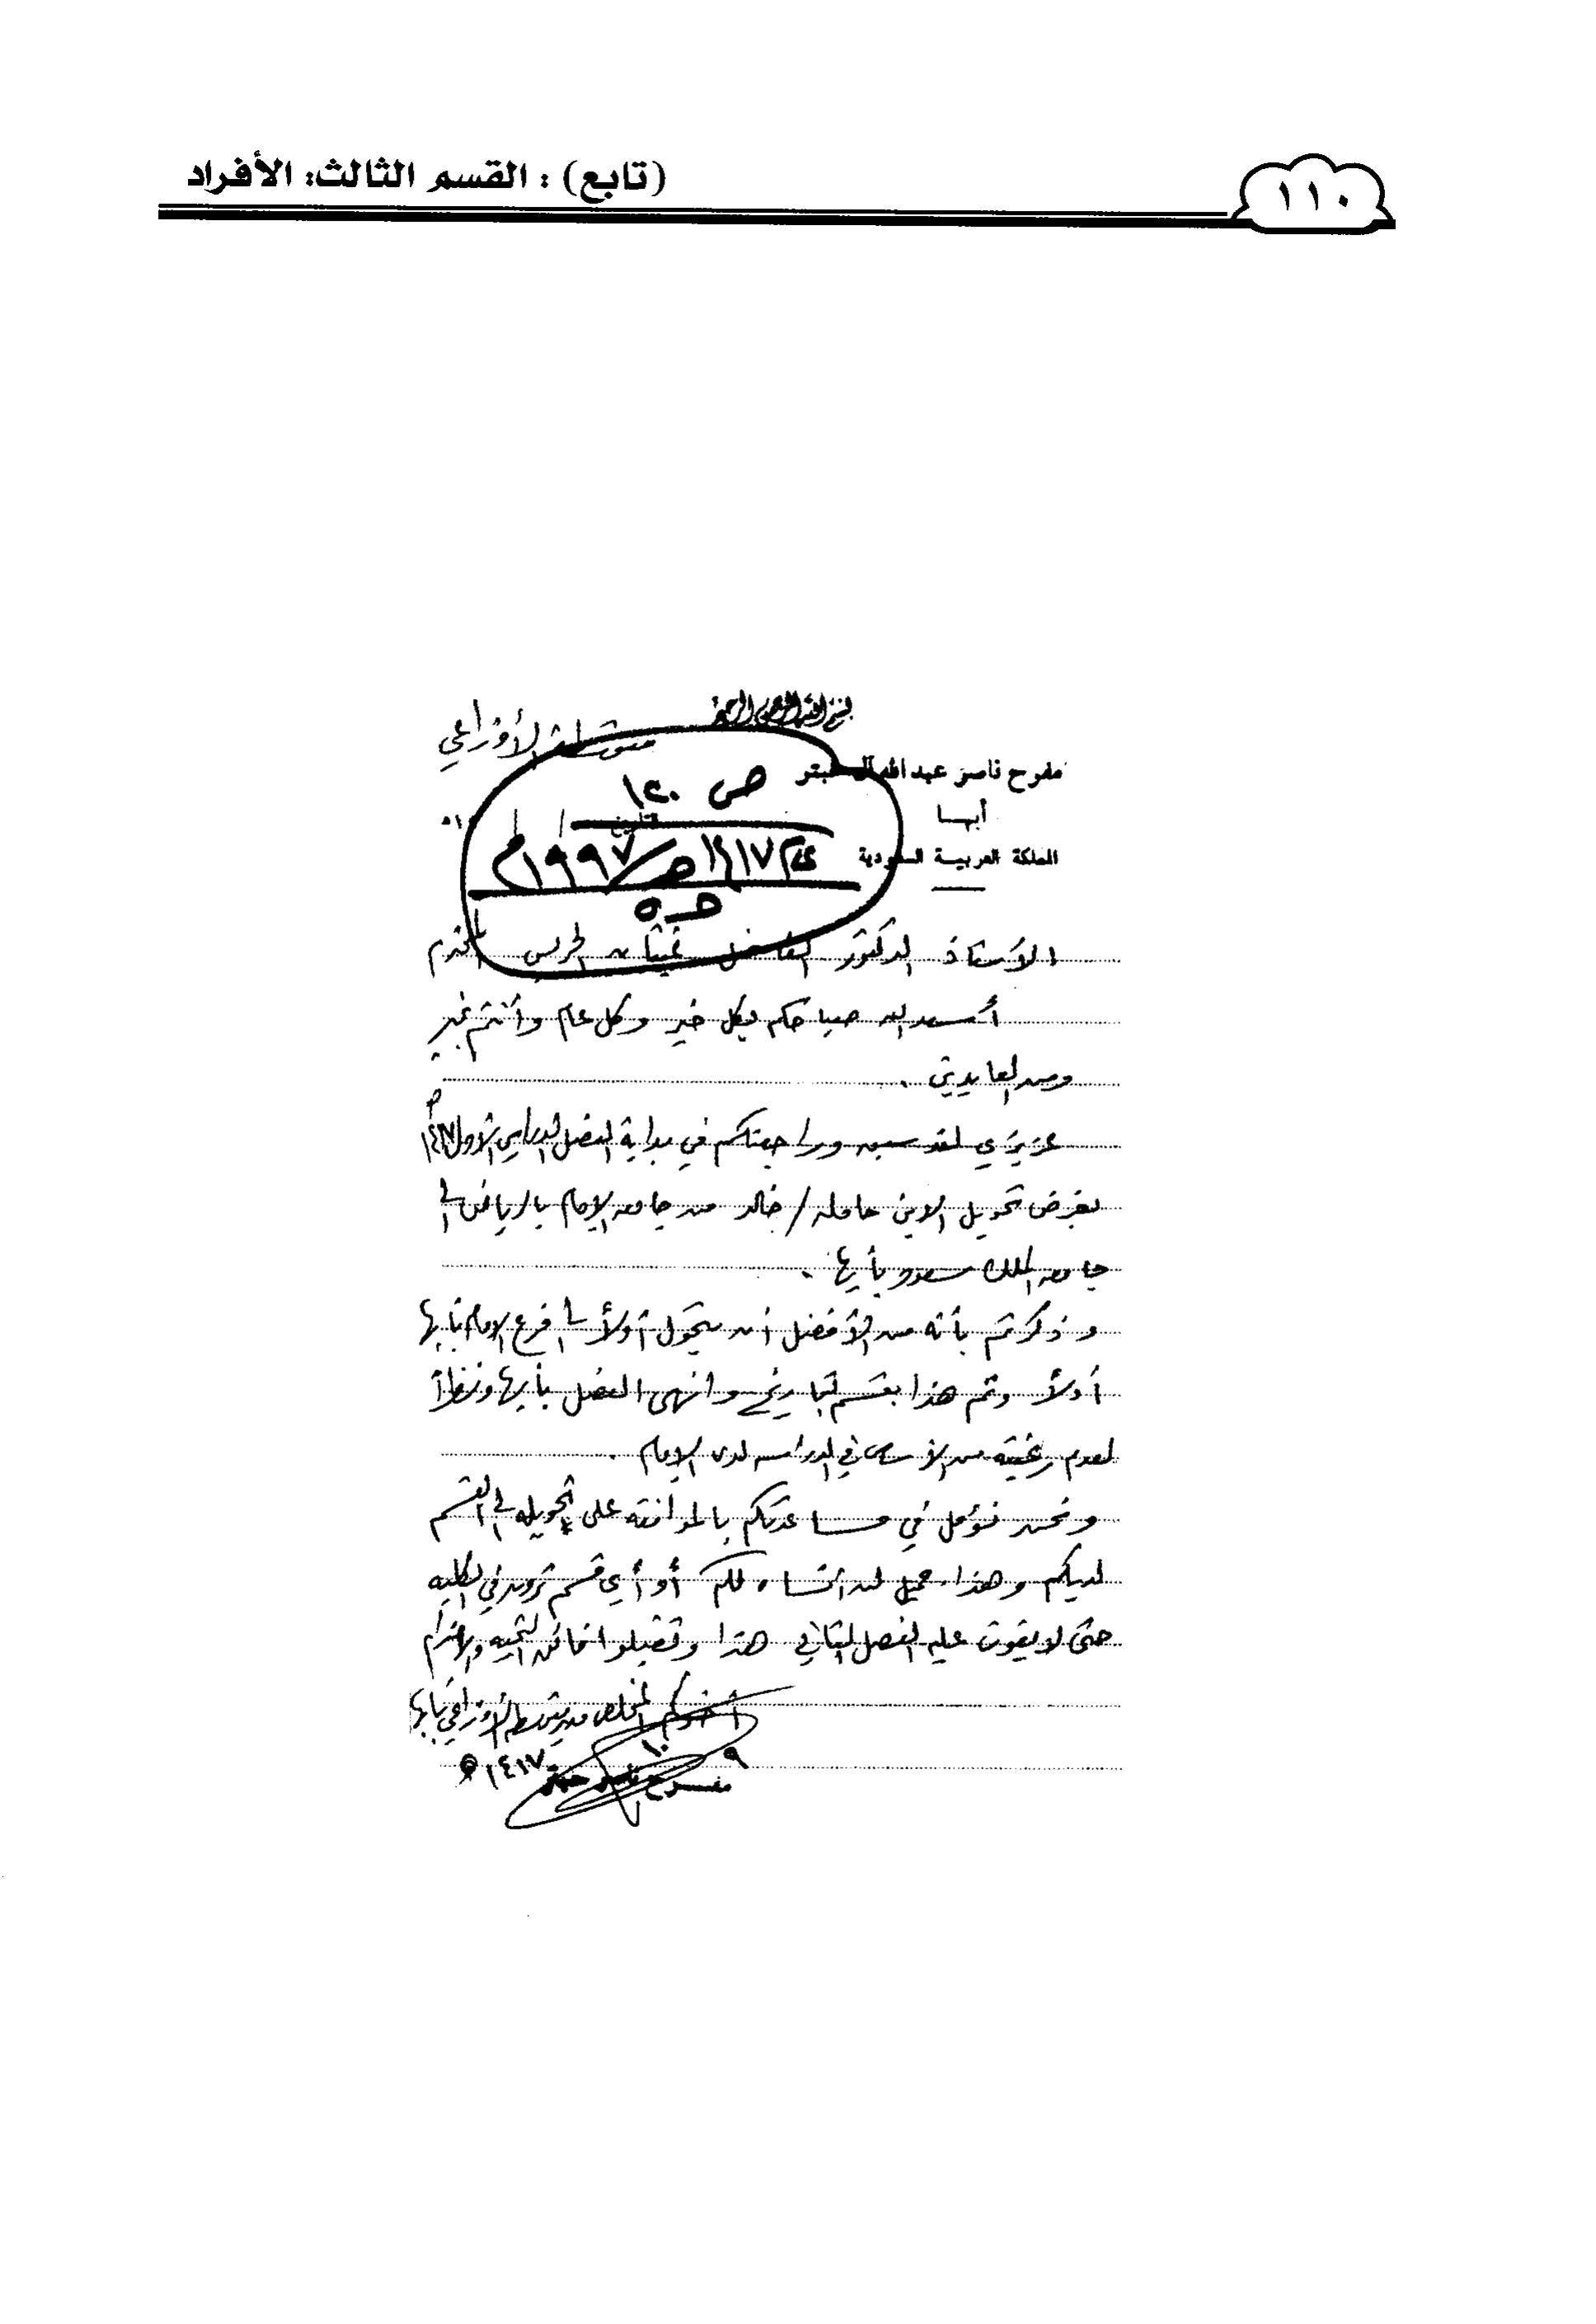 ١١٠
(تابع) : القسم الثالث: الأفراد
بسم الله الرحمن الرحيم
متوسطة الأوزاعي
مفرح ناصر عبدالله آل حبتر
ص ١٢٠
أبهـا
التاريخ / / ١٤هـ
المملكة العربية السعودية
١٤١٧هـ/١٩٩٧م
الأستاذ الدكتور الفاضل غيثان الجريس المحترم
أسعد الله صباحكم بكل خير وكل عام وأنتم بخير
ومن العايدين .
عزيزي لقد سبق وراجعتكم في بداية الفصل الدراسي الأول ١٤١٧هـ
بغرض تحويل الابن حامله / خالد من جامعه الإمام بالرياض الى
جامعه الملك سعود بأبها .
وذكرتم بأنه من الأفضل أن يتحول أولاً الى فرع الامام بأبها
أولاً وتم هذا بقسم التاريخ وانهى الفصل بأبها ونظراً
لعدم رغبته من الأساس في الدراسه لدى الإمام .
ونحن نؤمل في مساعدتكم بالموافقه على تحويله الى القسم
لديكم وهذا جميل لن انساه لكم أو أي قسم ترونه في الكليه
حتى لا يفوت عليه الفصل الثاني هذا وتقبلوا فائق التحيه والاحترام
أخوكم المخلص مدير متوسطة الأوزاعي بأبها
٩ ١٠ ١٤١٧هـ
مفرح ناصر